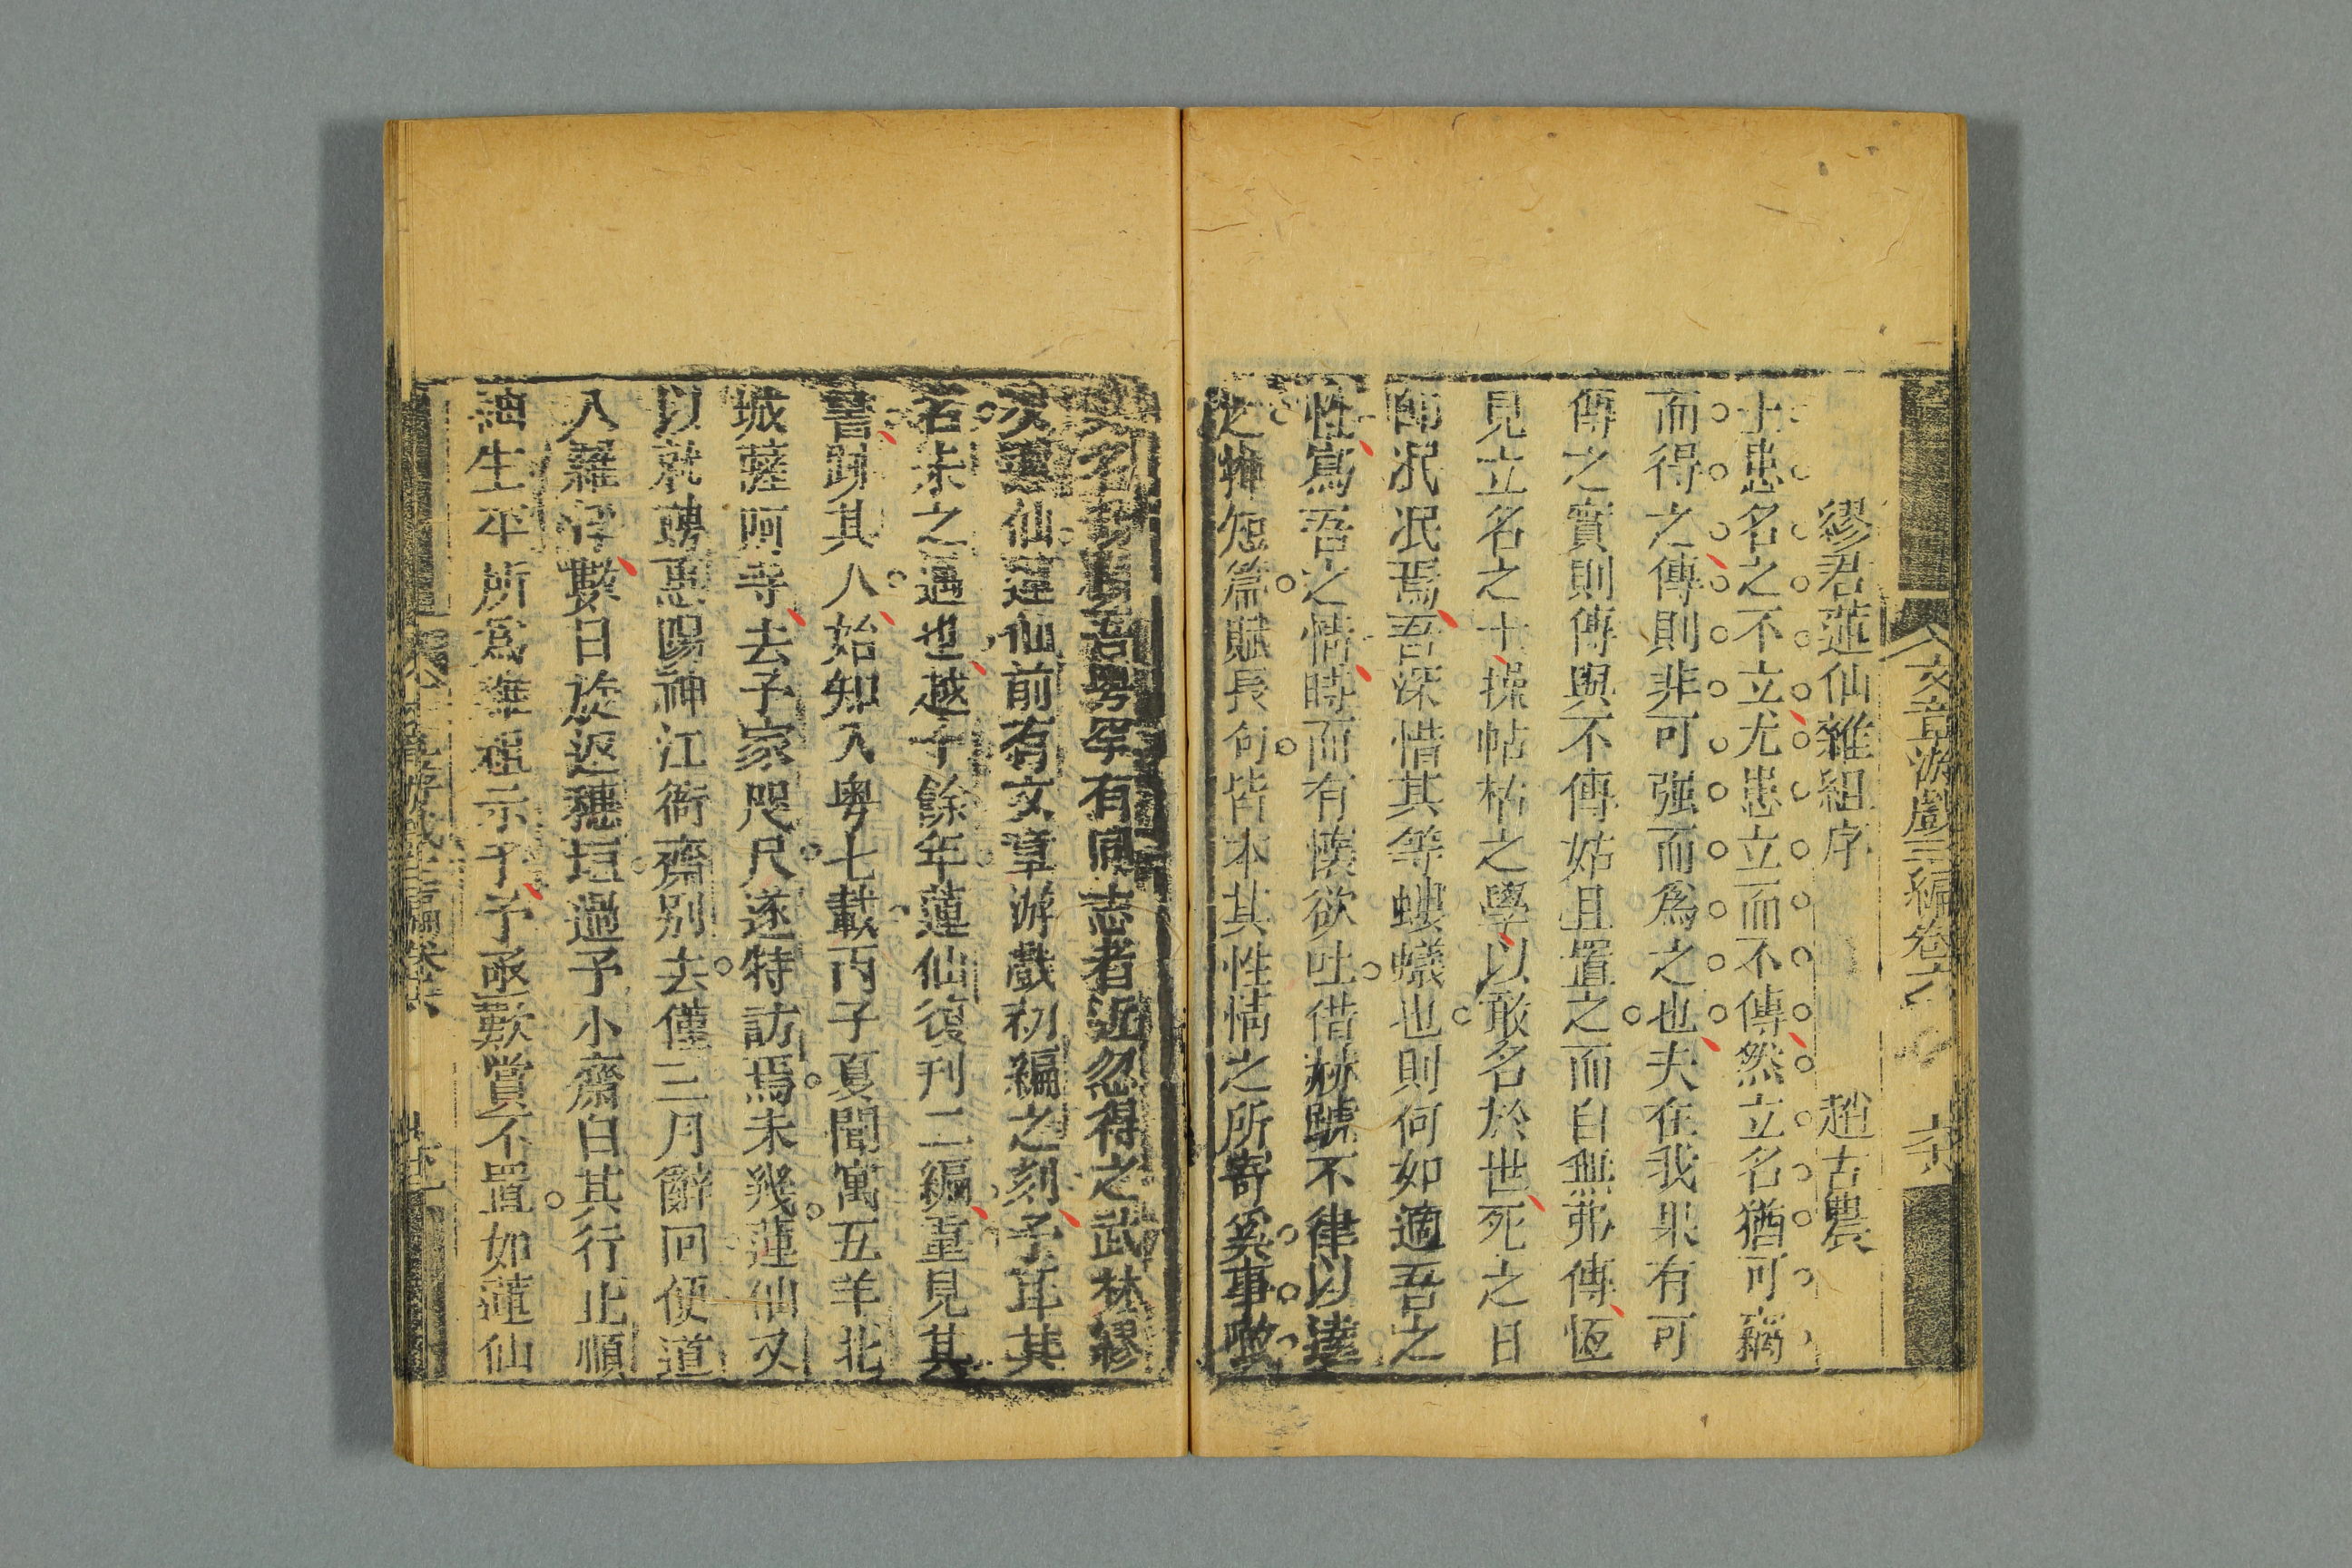 文章游戲三編卷六
繆君蓮仙雜組序　趙古農
士患名之不立尤患立而不傳然立名猶可竊
而得之傳則非可强而為之也夫在我果有可
傳之實則傳與不傳姑且置之而自無弗傳恆
見立名之士操帖枯之學以敢名於世死之日
卽泯泯焉吾深惜其等螻蟻也則何如適吾之
性寫吾之情時而有懷欲吐借赫蹏不律以達
之耶短篇賦長句皆本其性情之所寄奚事
名 吾粤罕有同志者近忽得之武林繆
君蓮仙蓮仙前有文章游戲初編之刻予耳其
名未之遇也越十餘年蓮仙復刊二編重見其
書跡其人始知入粤七載丙子夏聞寓五羊北
城薩阿寺去予家咫尺遂特訪焉未幾蓮仙又
以就聘惠陽神江衙齋別去僅三月辭回便道
入羅浮數日旋返穗垣過予小齋白其行止順
紬生平所爲雜組示予予亟歎賞不置如蓮仙
文章游戲三編卷六